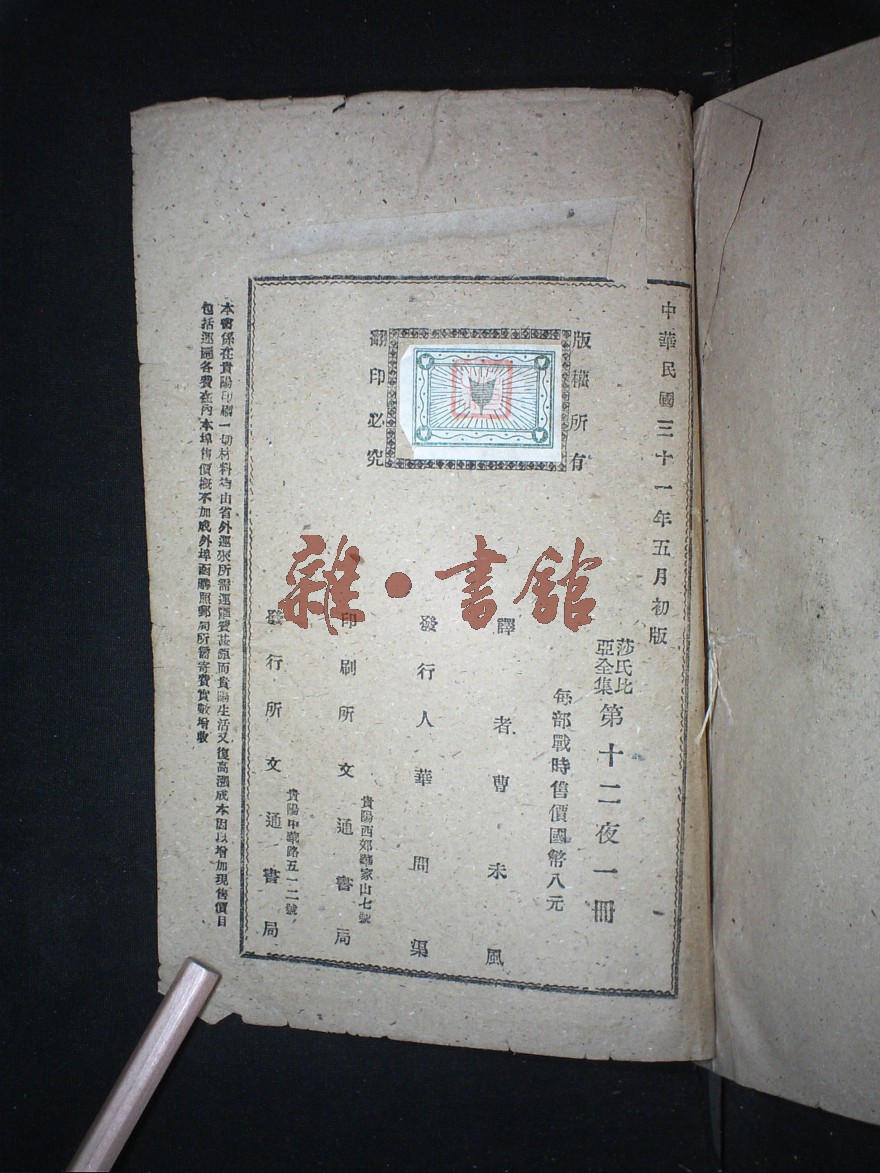 中華民國三十一年五月初版
版權所有
翻印必究
莎氏比
亞全集
第十二夜一冊
每部戰時售價國幣八元
譯者曹未風
發行人華問渠
貴陽西郊蔡家山七號
印刷所文通書局
貴陽中華路五一二號
發行所文通書局
本書係在貴陽印刷一切材料均由省外運來所需運匯費甚鉅而貴陽生活又復高漲成本因以增加現售價目
包括運匯各費在內本埠售價概不加成外埠函購照郵局所需寄費實數增收
雜·書館